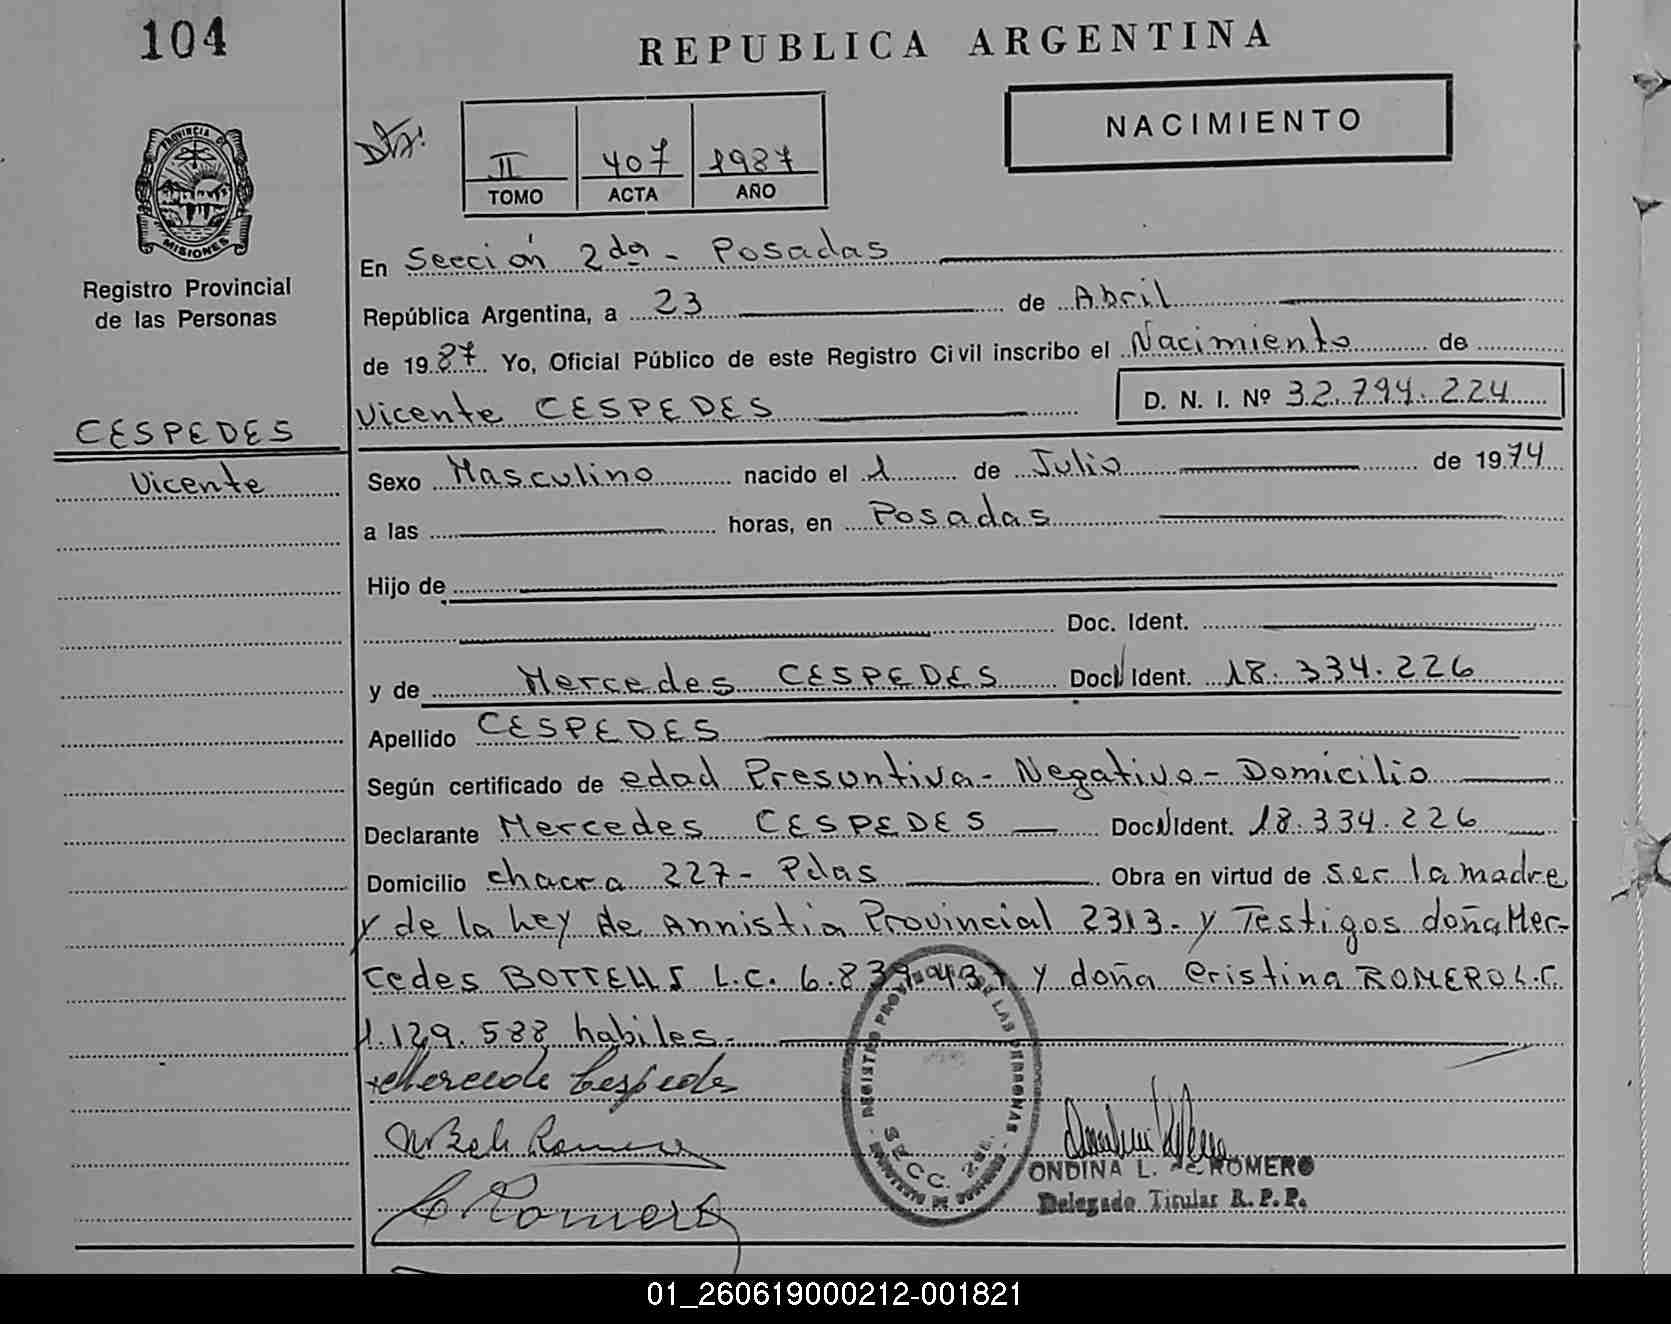 104
REPUBLICA ARGENTINA
NACIMIENTO
II 407 1987
TOMO ACTA AÑO
PROVINCIA DE
MISIONES
Registro Provincial
de las Personas
CESPEDES
Vicente
En Sección 2da - Posadas
República Argentina, a 23 de Abril
de 1987 Yo, Oficial Público de este Registro Civil inscribo el Nacimiento de
Vicente CESPEDES D. N. I. Nº 32.794.224
Sexo Masculino nacido el 1 de Julio de 1974
a las horas, en Posadas
Hijo de
Doc. Ident.
y de Mercedes CESPEDES Doc. Ident. 18.334.226
Apellido CESPEDES
Según certificado de edad Presuntiva - Negativo - Domicilio
Declarante Mercedes CESPEDES Doc. Ident. 18.334.226
Domicilio chacra 227 - Pdas Obra en virtud de ser la madre
y de la Ley de Amnistia Provincial 2313.- y Testigos doña Mer-
cedes L.C. y doña Cristina ROMERO L.C.
1.129.588 habiles.-
Mercede Cespedes
Romero
C Romero
REGISTRO PROVINCIAL DE LAS PERSONAS
SECC. 2da.
ONDINA L. de ROMERO
Delegado Titular R. P. P.
01_260619000212-001821